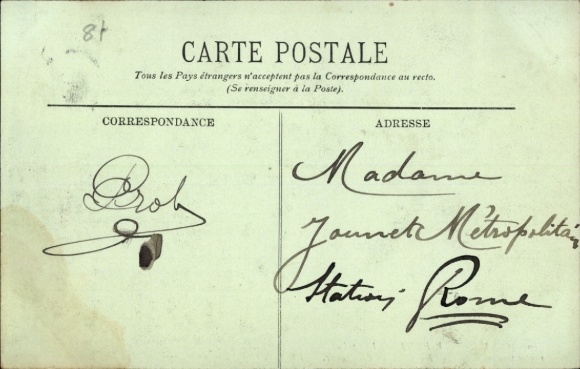 84
CARTE POSTALE
Tous les Pays étrangers n'acceptent pas la Correspondance au recto.
(Se renseigner à la Poste).
CORRESPONDANCE
ADRESSE
Madame
Métropolitain
Station Rome